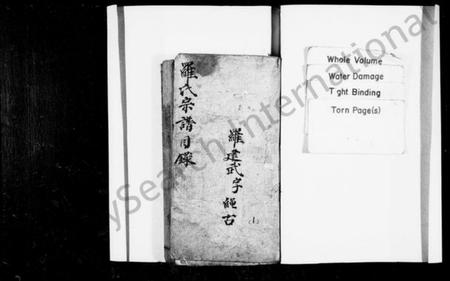 羅氏宗譜目錄
羅建武字繩古
(1)
Whole Volume
Water Damage
Tight Binding
Torn Page(s)
ySearch International